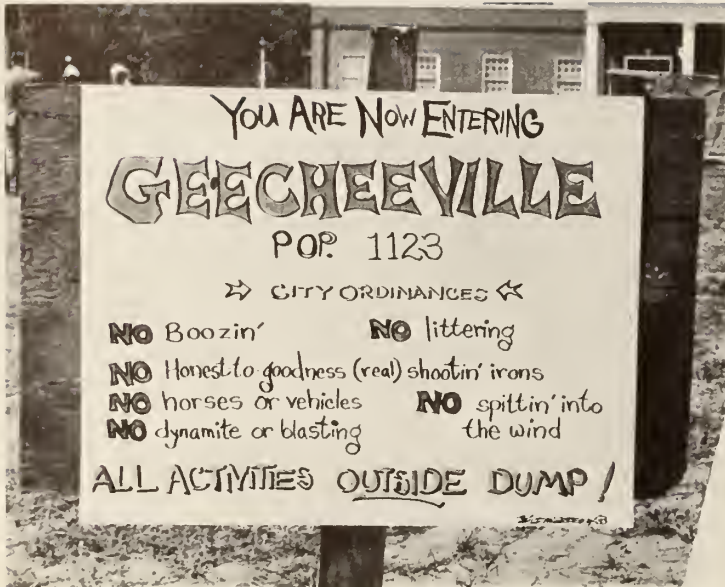 YOU ARE NOW ENTERING
GEECHEEVILLE
POP. 1123
CITY ORDINANCES
NO Boozin' NO littering
NO Honest to goodness (real) shootin' irons
NO horses or vehicles NO spittin' into
NO dynamite or blasting the wind
ALL ACTIVITIES OUTSIDE DUMP!